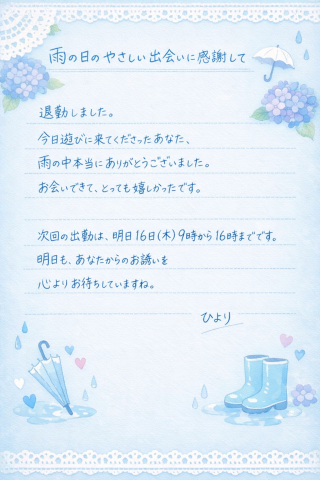 雨の日のやさしい出会いに感謝して
退勤しました。
今日遊びに来てくださったあなた、
雨の中本当にありがとうございました。
お会いできて、とっても嬉しかったです。
次回の出勤は、明日16日(木)9時から16時までです。
明日も、あなたからのお誘いを
心よりお待ちしていますね。
ひより